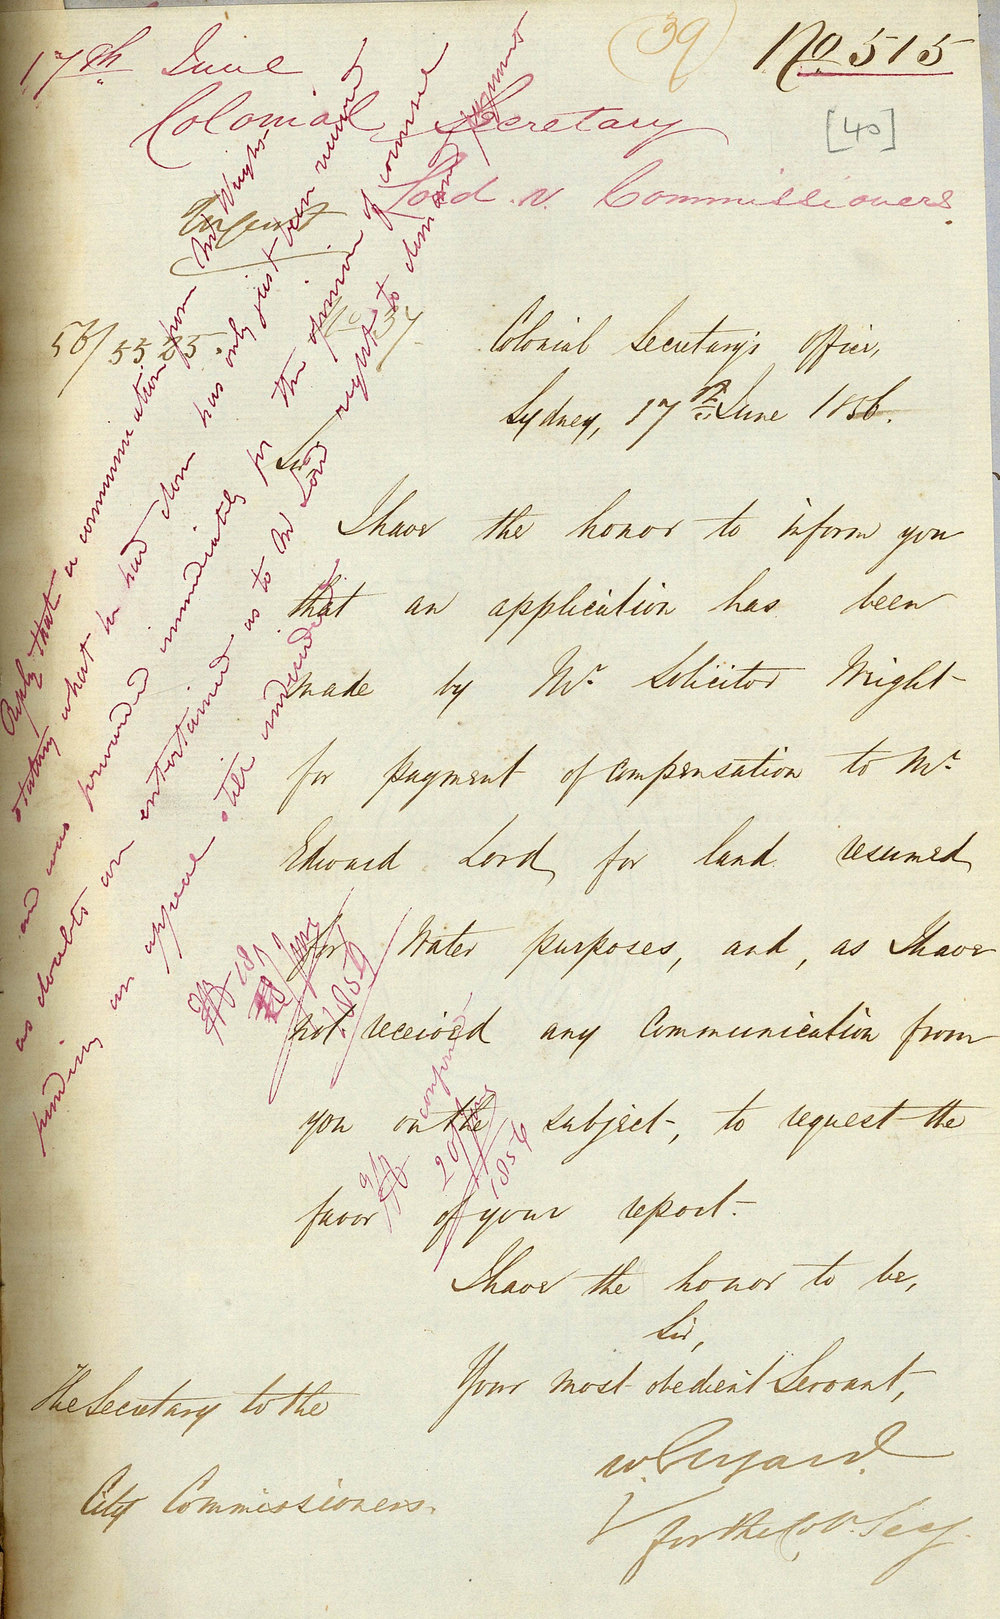 17th June
(39)
No 515
Colonial Secretary
[40]
Lord v. Commissioners.
Urgent
56/5525.
No 37
Colonial Secretary's Office,
Sydney, 17th June 1856.
Sir
I have the honor to inform you
that an application has been
made by Mr. Solicitor Wright
for payment of compensation to Mr.
Edward Lord, for land resumed
for Water purposes, and, as I have
not received any Communication from
you on the subject, to request the
favor of your report.
I have the honor to be,
Sir,
Your most obedient Servant,
W. Elyard.
for the Col. Secy.
The Secretary to the
City Commissioners.
Reply that a communication from Mr Wright
stating what he had done has only just been received
and was forwarded immediately for the opinion of counsel
as doubts are entertained as to Mr Lord right to demand payment
pending an appeal still undecided
187
18 June
1856
confirmed
20 June
1856